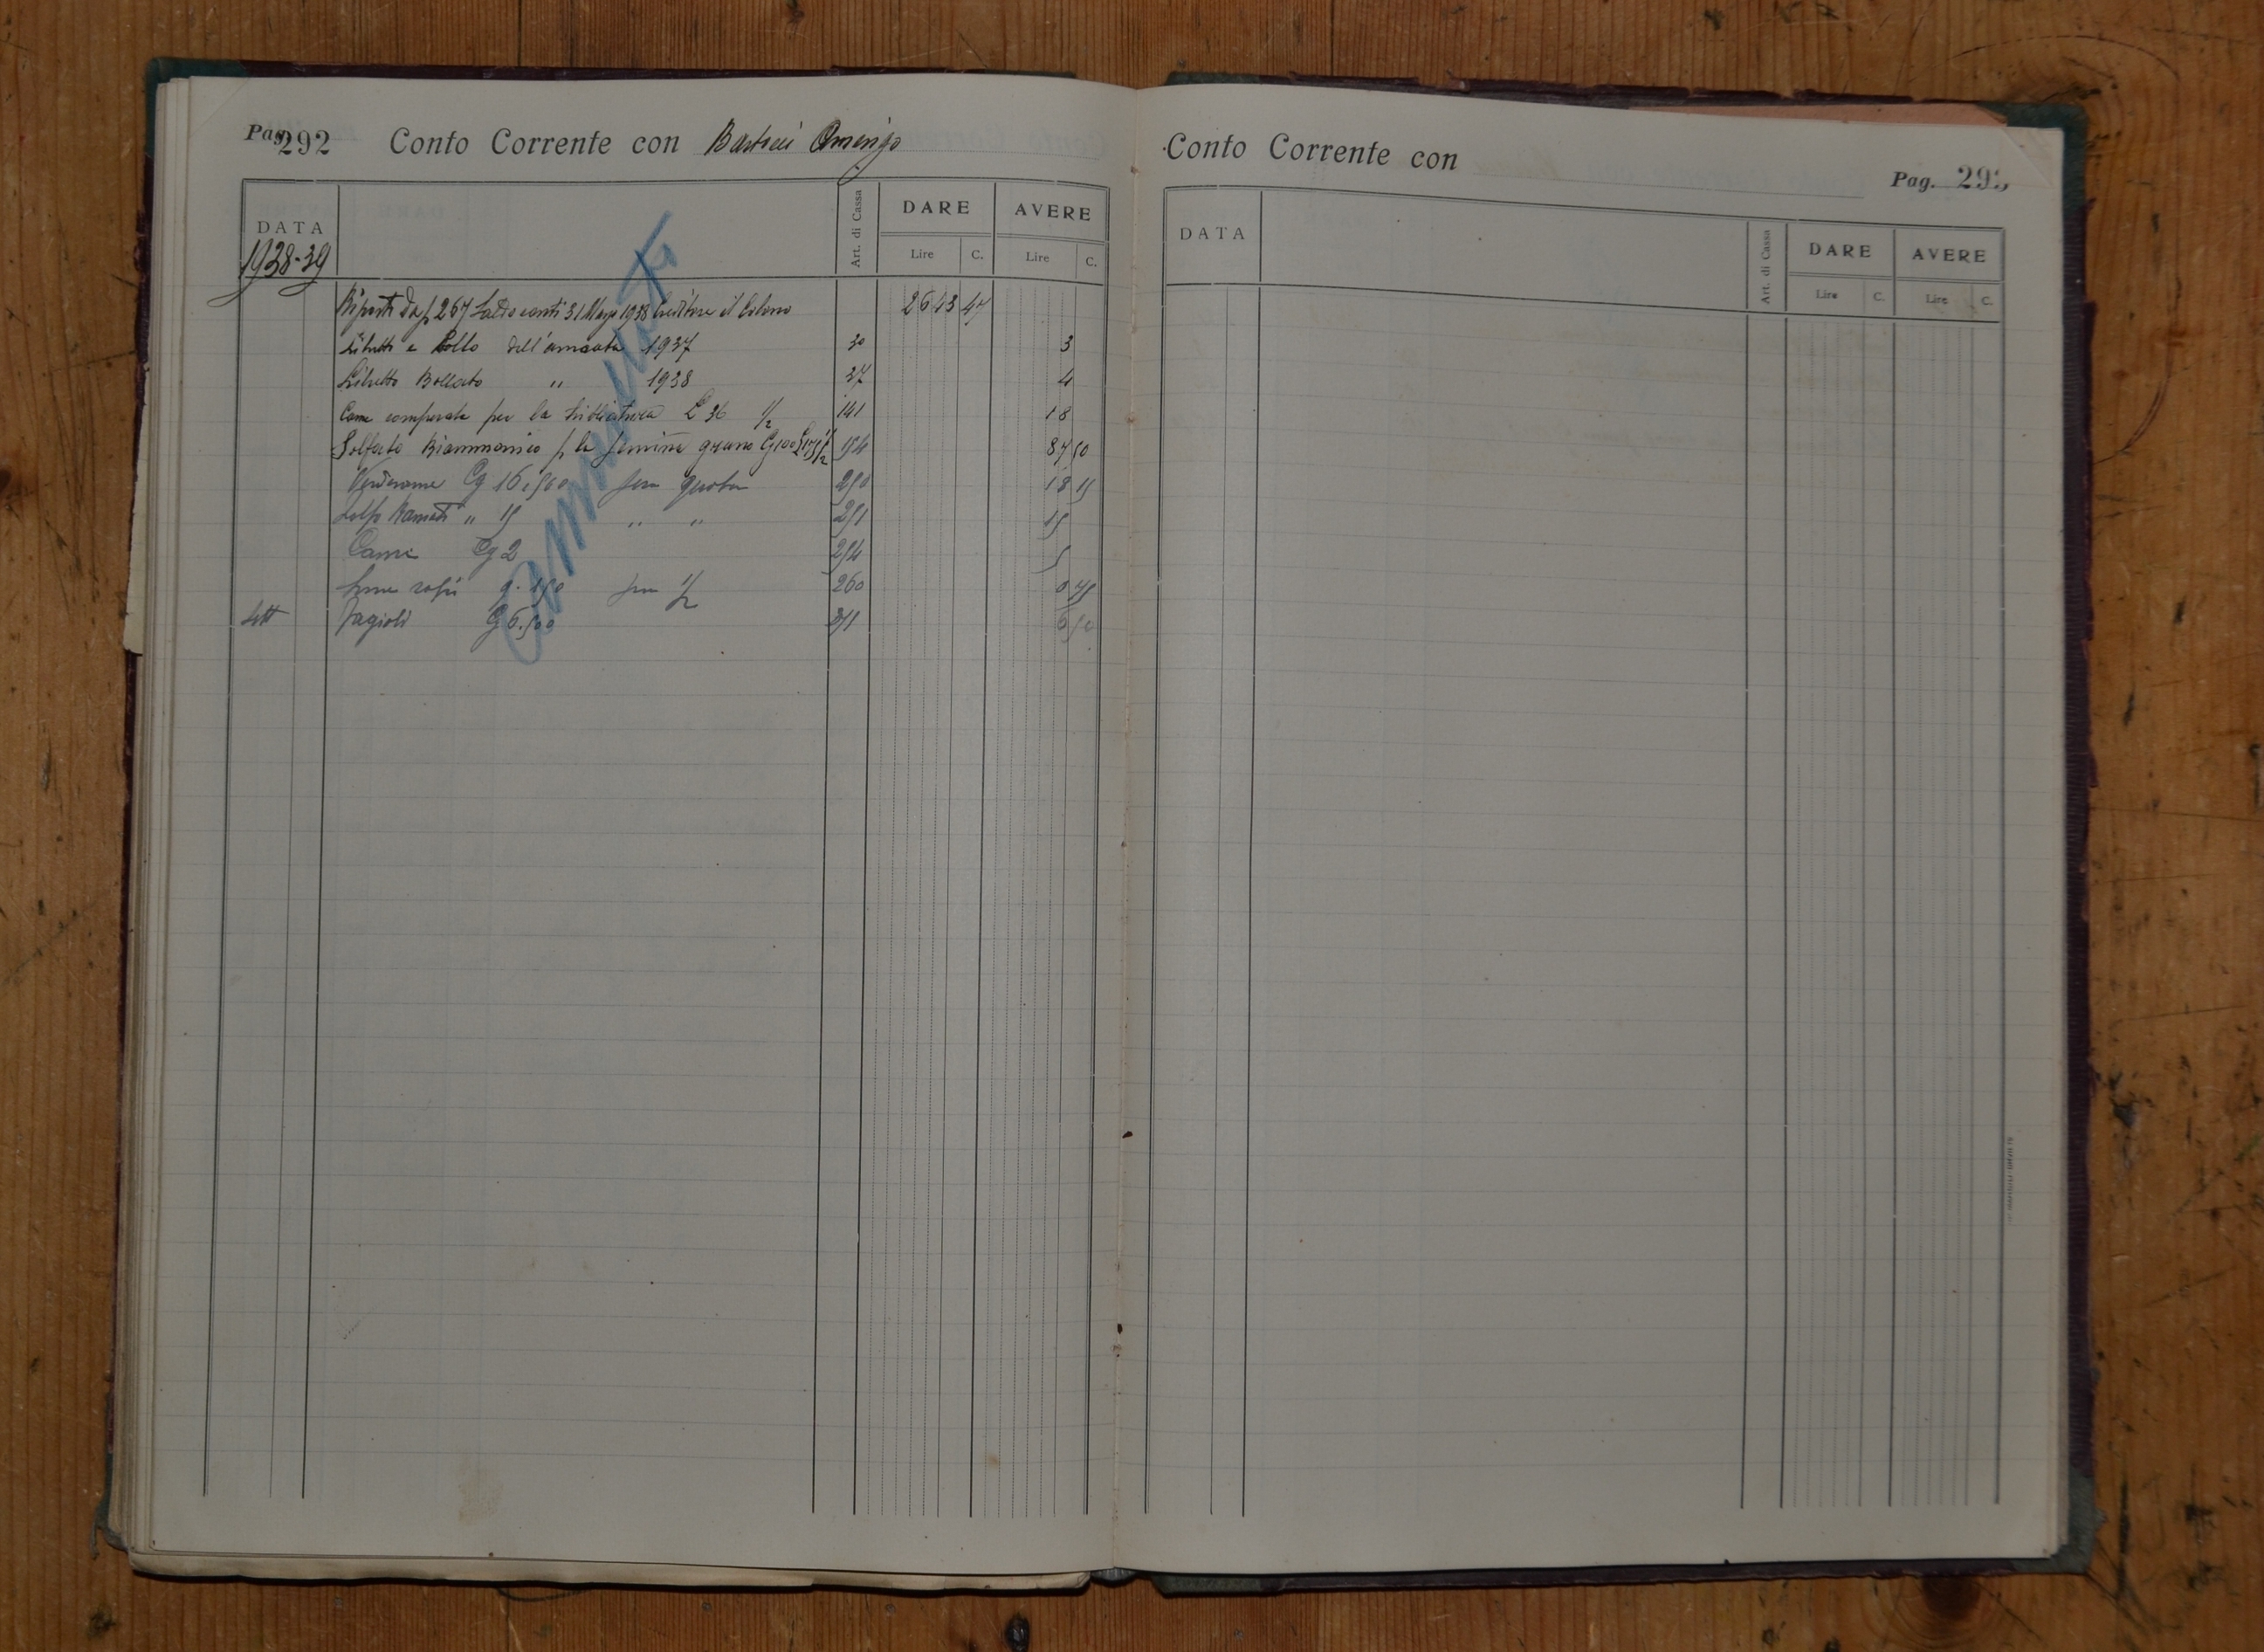 Pag. 292 Conto Corrente con Amerigo
DATA Art. di Cassa DARE AVERE
1938-39 Lire C. Lire C.
Riporto da p 267 Saldo conti 31 Maggio 1938 Creditore il Colono 2643 47
Libretti e bollo dell'annata 1937 30 3
Libretto Bollato " 1938 37 4
Carne comperata per la L 36 1/2 141 18
Solfato Biammonico p la semina grano Cg 100 L 175 1/2 154 87 50
Verderame Cg 16,500 sua quota 250 18 15
Zolfo Ramato " 15 " " 251 15
Carne Cg 2 254 5
Seme rape g. 150 sua 1/2 260 0 75
Sett Fagioli Cg 6.500 351 6 50
Conto Corrente con
Pag. 293
DATA Art. di Cassa DARE AVERE
Lire C. Lire C.